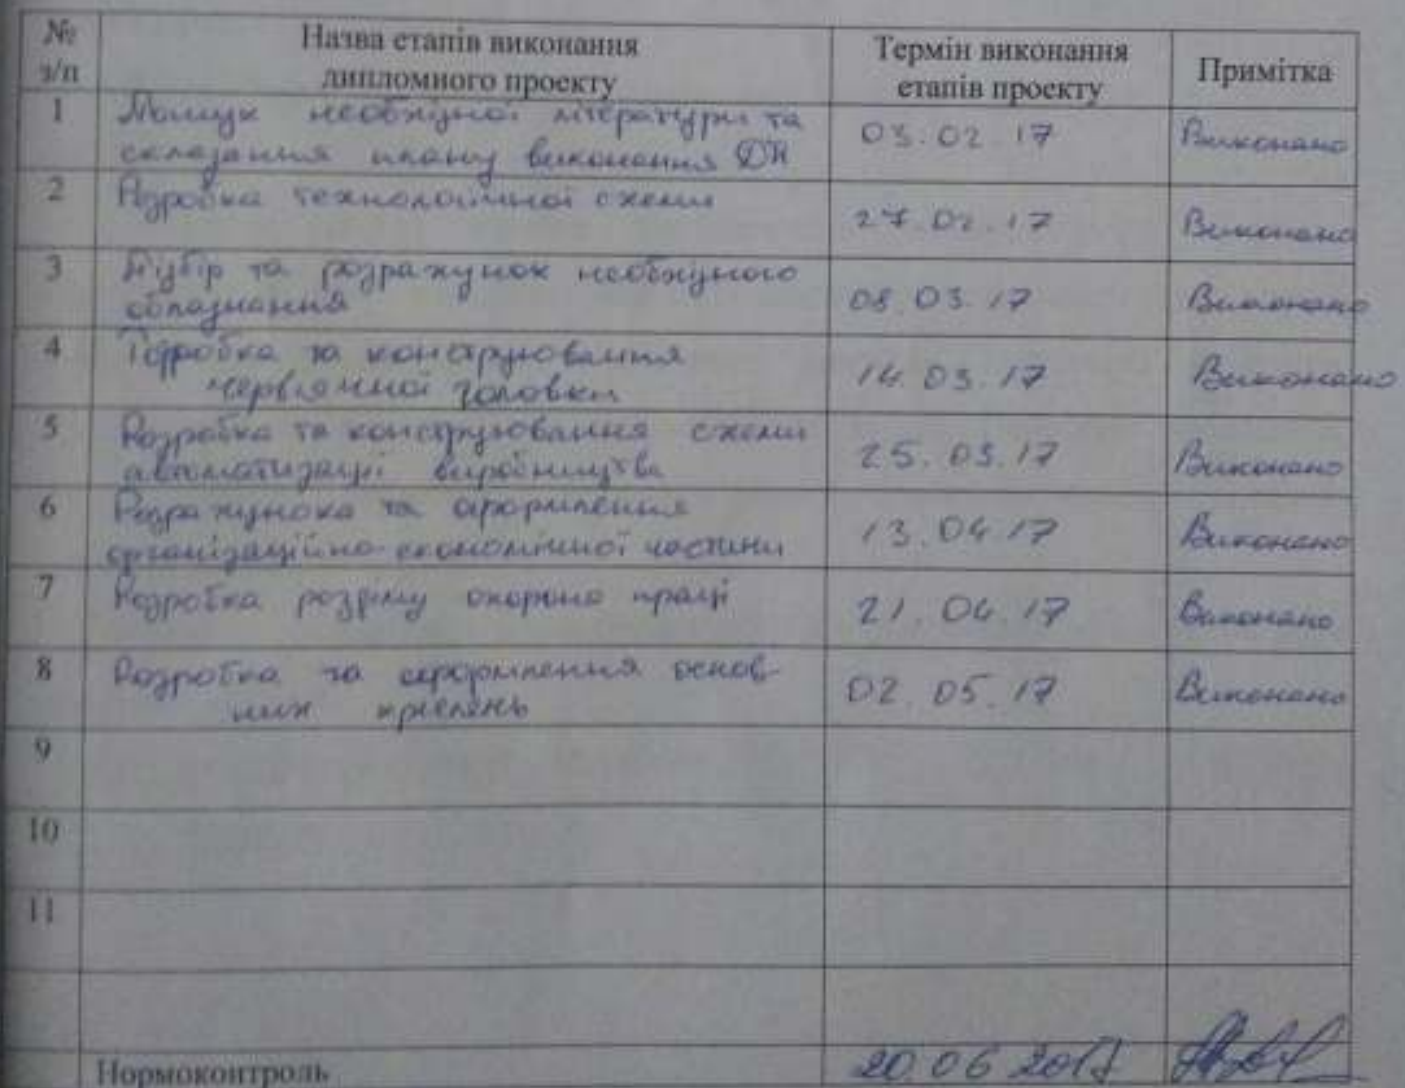 № з/п
Назва етапів виконання
дипломного проекту
Термін виконання
етапів проекту
Примітка
1 Пошук необхідної літератури та
складання плану виконання ДП
03.02.17 Виконано
2 Розробка технологічної схеми
27.02.17 Виконано
3 Підбір та розрахунок необхідного
обладнання
08.03.17 Виконано
4 та конструювання
черв'ячної головки
14.03.17 Виконано
5 Розробка та конструювання схеми
автоматизації виробництва
25.03.17 Виконано
6 та оформлення
організаційно-економічної частини
13.04.17 Виконано
7 Розробка розділу охорона праці
21.04.17 Виконано
8 Розробка та оформлення основ-
них креслень
02.05.17 Виконано
9
10
11
Нормоконтроль 20.06.2017